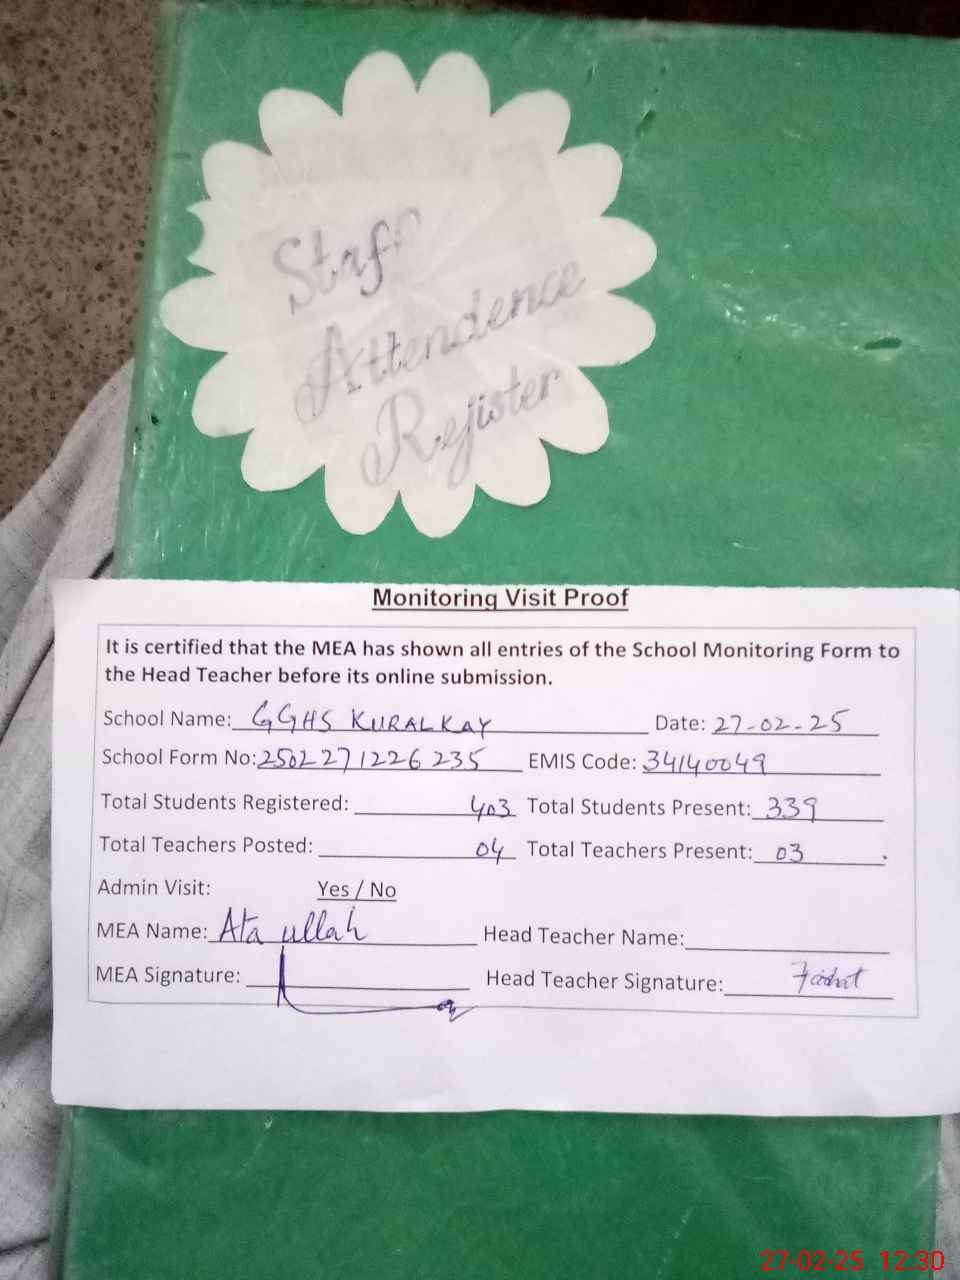 Staff
Attendence
Rejister
Monitoring Visit Proof
It is certified that the MEA has shown all entries of the School Monitoring Form to
the Head Teacher before its online submission.
School Name: GGHS KURALKAY Date: 27-02-25
School Form No: 2502271226235 EMIS Code: 34140049
Total Students Registered: 403 Total Students Present: 339
Total Teachers Posted: 04 Total Teachers Present: 03
Admin Visit: Yes / No
MEA Name: Ata ullah Head Teacher Name:
MEA Signature: Head Teacher Signature:
27-02-25 12:30